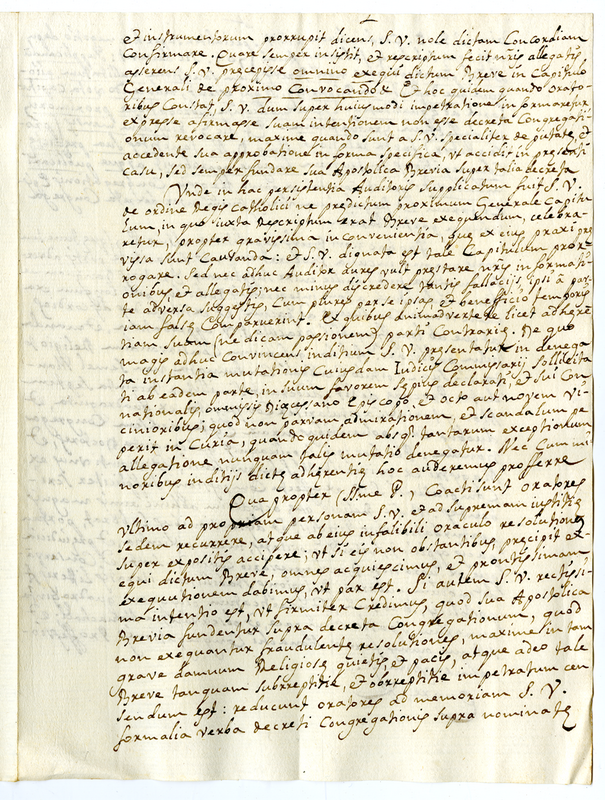 et instrumentorum prorrupit dicens, S. V. nole dictam Concordiam
Confirmare. Quare semper insistit, et rescriptum fecit nr̃is allegatis
asserens S. V. precepisse omnino exequi dictum Breve in Capitulo
Generali de proximo Convocando. Et hoc quidem quando Orato-
ribus Constat, S. V. dum super huiusmodi impetratione informaretur
expresse afirmasse suam intentionem non esse decreta Congregati-
onum revocare, maxime quando sunt a S. V. specialiter deputate, et
accedente sua approbatione in forma specifica, vt accidit in presenti
casu, sed semper fundare sua Apostolica Brevia super talia decreta
Vnde in hac persistentia Auditoris Supplicatum fuit S. V.
de ordine Regis Catholici ne predictum proximum Generale Capitu
lum, in quo iuxta Rescriptum erat Breve exequendum, celebra-
retur, propter gravissima inconvenientia, que ex eius praxi pre
vissa sunt Cautanda: et S. V. dignata est tale Capitulum pror-
rogare. Sed nec adhuc Auditor aures vult prestare nr̃is informati-
onibus, et allegatis; nec minus discredere tantis fallacijs, ipsi a par-
te adversa suggestis, Cum plures per se ipsas, et benefficio temporis
iam falsę Comparuerint. Ex quibus animadvertere licet adhere
tiam suam (ne dicam passionem) parti Contrarię. De quo
magis adhuc Convincens inditium S. V. presentatur in denega
ta instantia mutationis Cuiusdam Iudicis Commissarij sollicita
ti ab eadem parte, in suum favorem sępius declarati, et sui Con
nationalis, omissis Diocessano Episcopo, et octo aut novem Vi-
cinioribus; quod non parvam admirationem, et scandalum pe
perit in Curia, quando quidem absq̃ tantarum exceptionum
allegatione nunquam talis mutatio denegatur. Nec Cum mi
noribus inditijs dictę adherentię hoc auderemus profferre
Qua propter (Sm̃e P.) Coacti sunt Oratores
vltimo ad propriam personam S. V. et ad supremam iustitię
sedem recurrere, atque ab eius infalibili oraculo resolutionẽ
super expositis accipere; vt si eis non obstantibus, precipit ex-
equi dictum Breve, omnes acquiescimus, et prontissimam
exequutionem dabimus, vt par est. Si autem S. V. rectissi-
ma intentio est, vt firmiter Credimus, quod sua Apostolica
Brevia fundentur supra decreta Congregationum, quod
non exequantur fraudulentę resolutiones, maxime in tam
grave damnum Religiosę quietis et pacis, atque adeo tale
Breve tanquam subrreptitie, et obrreptitie impetratum cen
sendum est: reducunt oratores ad memoriam S. V.
formalia verba decreti Congregationis supra nominatę